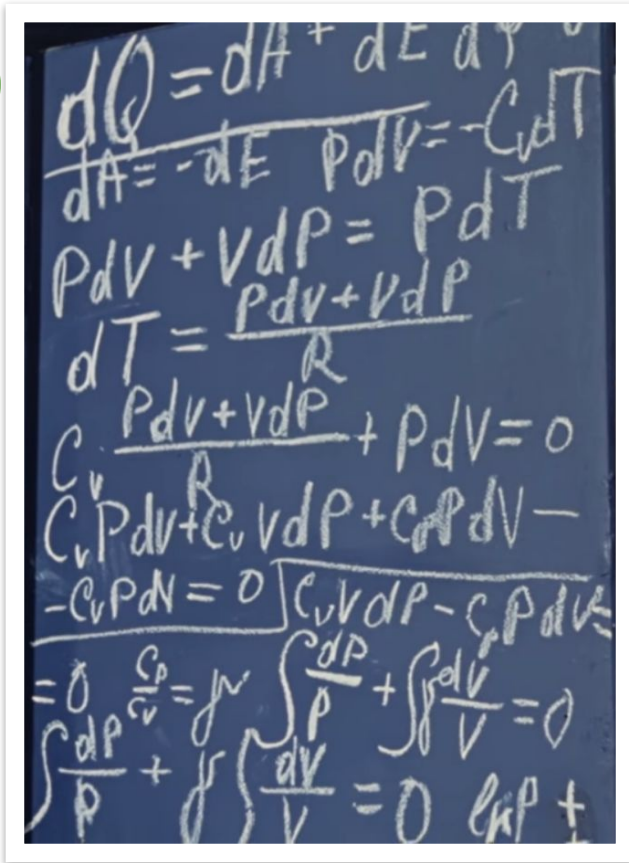 dQ = dA + dE
dA = -dE PdV = -CvdT
PdV + VdP = PdT
dT = (PdV + VdP)/R
Cv (PdV + VdP)/R + PdV = 0
CvPdV + CvVdP + CpPdV -
-CvPdV = 0 CvVdP - CpPdV =
= 0 Cp/Cv = γ ∫dP/P + ∫γdV/V = 0
∫dP/P + γ∫dV/V = 0 lnP +